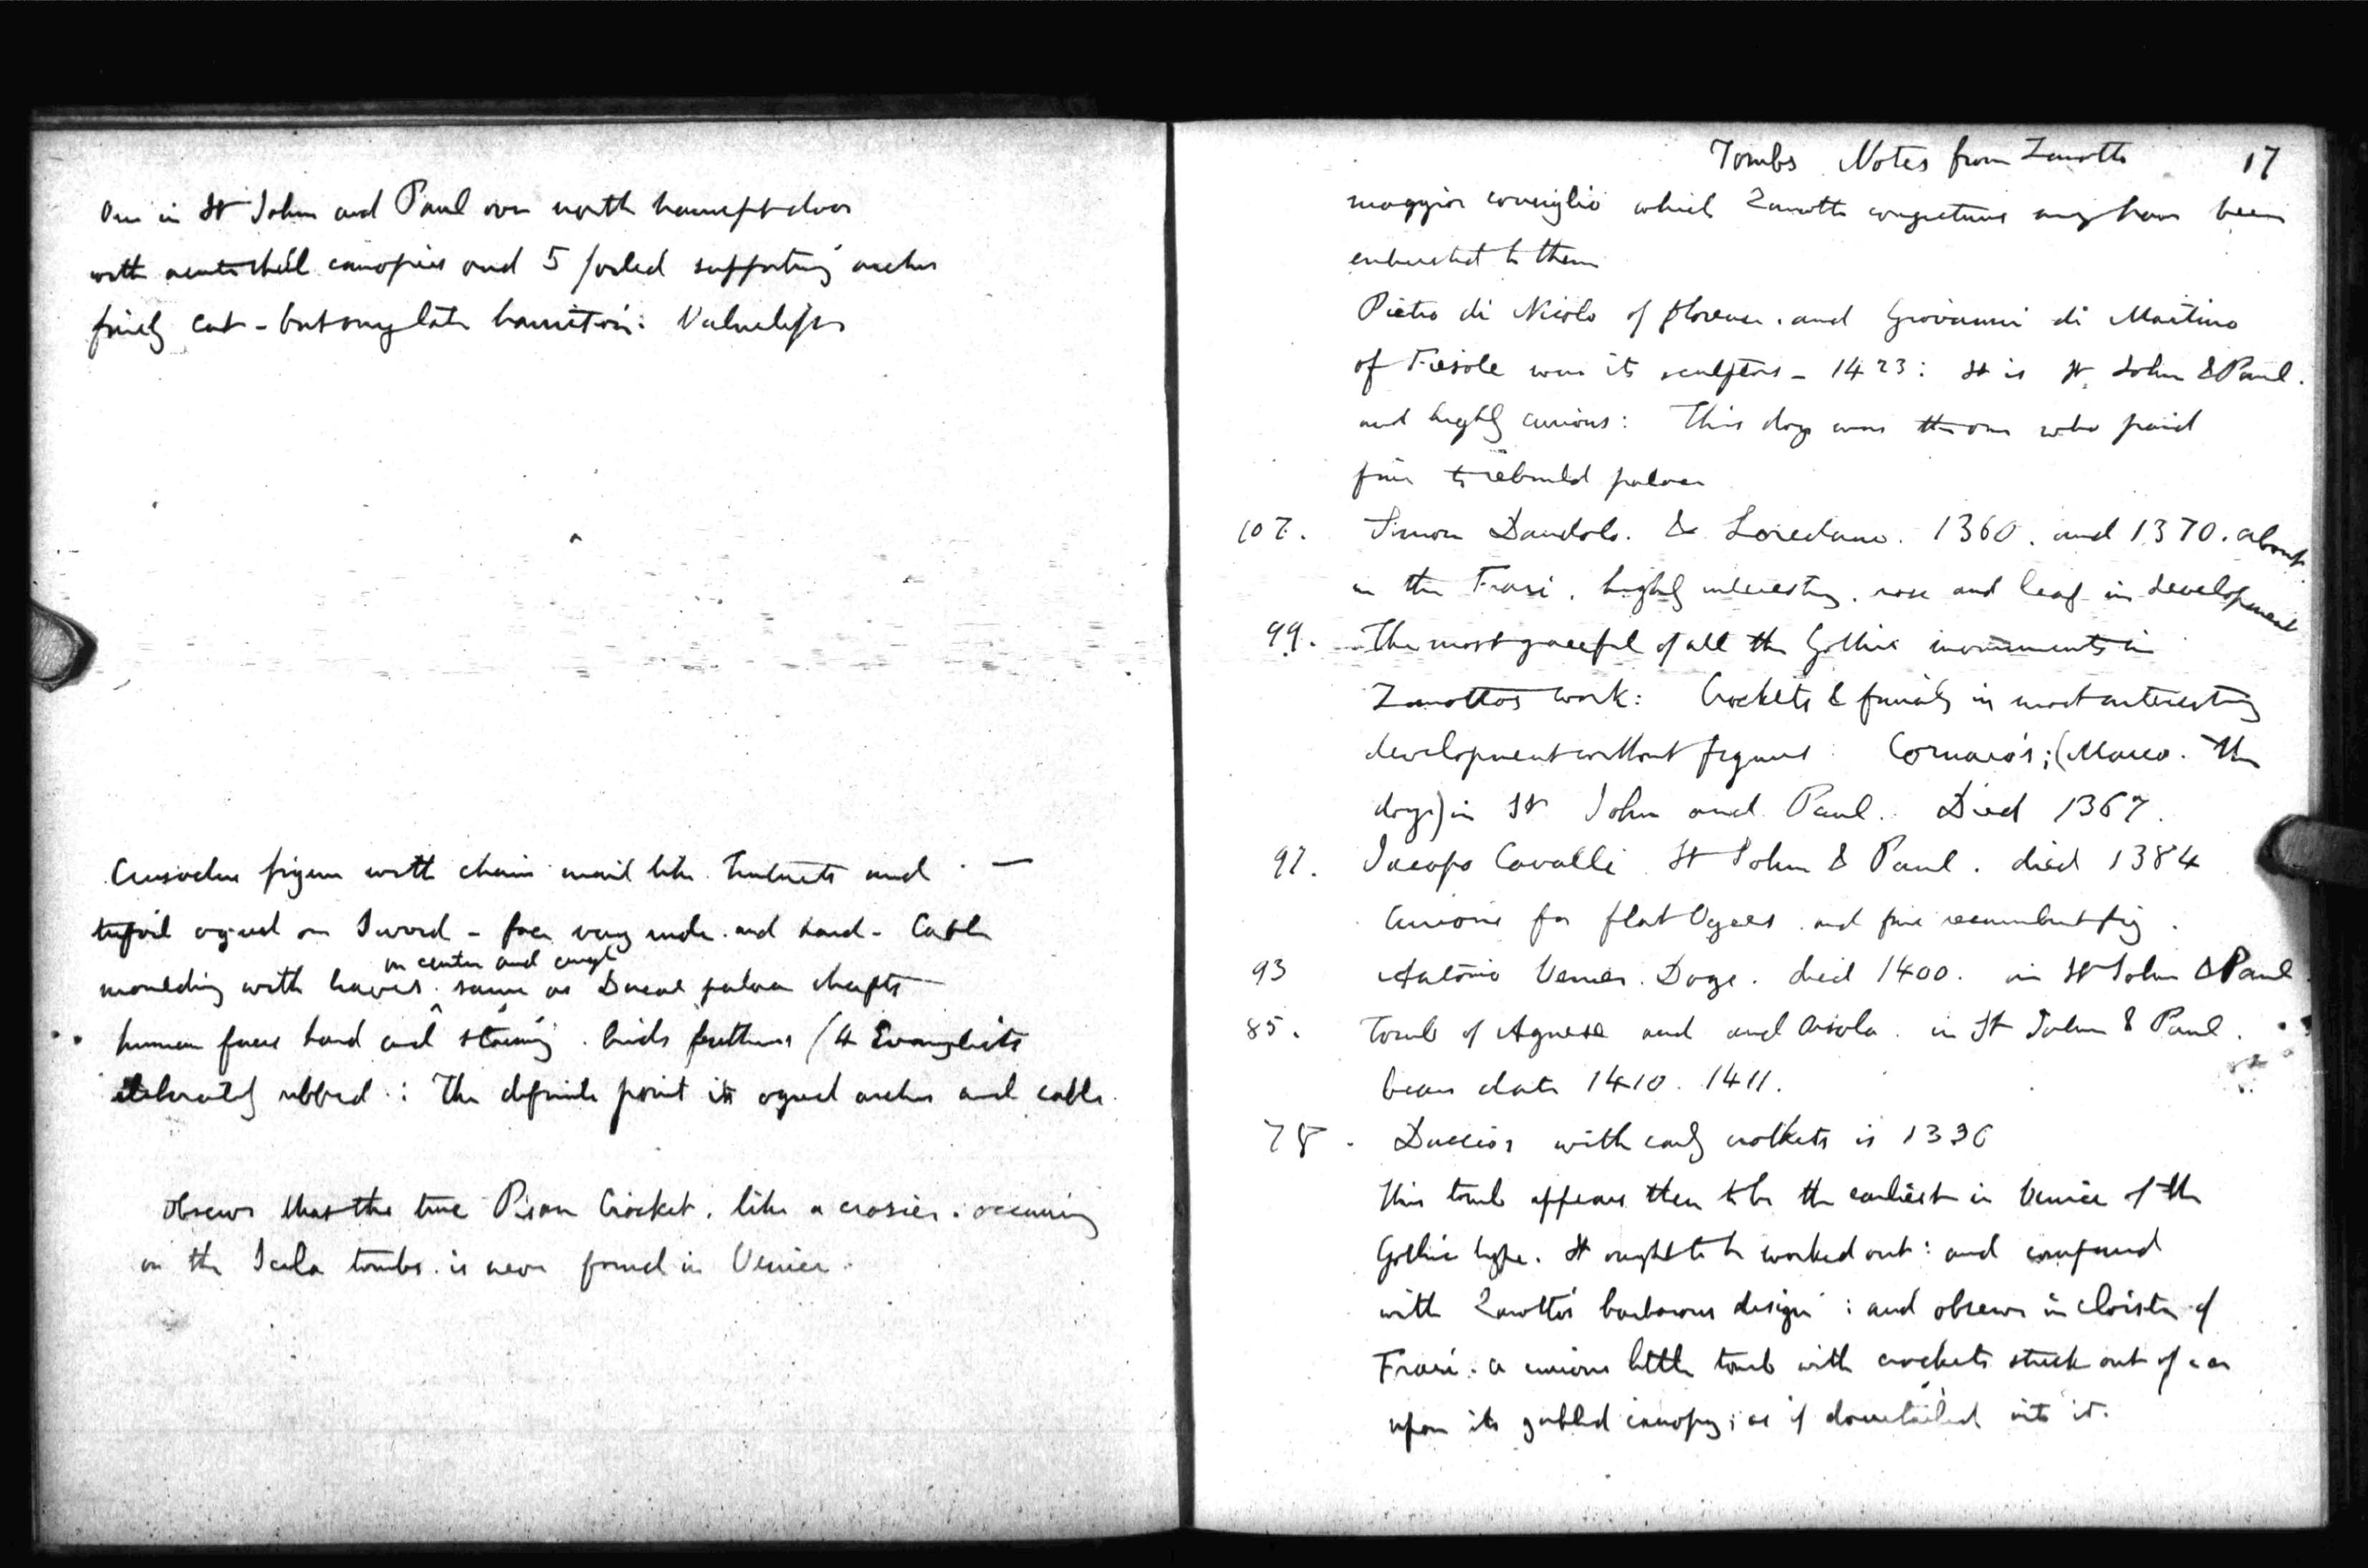 One in St John and Paul over north transept door
with acute shell canopies and 5 foiled supporting arches
finely cut - but only late transition: Valueless
Crusader figure with chain mail like and —
trefoil ogeed on Sword - face very rude and hard - Cable
on center and
moulding with leaves. same as Ducal palace chapts —
human faces hard and staring. birds feathers (4 Evangelists
elaborately ribbed: The definite point is ogeed arches and cable.
Observe that the true Pisan Crocket, like a crosier. occurring
on the Scala tombs. is never found in Venice.
Tombs Notes from Zanotto 17
maggior consiglio which Zanotto conjectures may have been
entrusted to them
Pietro di Nicolo of florence. and Giovanni di Martino
of Fiesole were its sculptors - 1423: It is St. John & Paul.
and highly curious: This doge was the one who paid
fine to rebuild palace
107. Simon Dandolo. & Loredano. 1360. and 1370. about.
in the Frari. highly interesting. rose and leaf in development
99. The most graceful of all the Gothic monuments in
Zanottos work: Crockets & finials in most interesting
development without figures: Cornaro's; (Marco. The
doge) in St John and Paul. Died 1367.
97. Jacopo Cavalli. St John & Paul. died 1384
Curious for flat Ogees and fine recumbent fig.
93 Antonio Venier. Doge. died 1400. in St John & Paul.
85. Tomb of Agnese and and Orsola. in St John & Paul.
bears date 1410. 1411.
78. Duccios with early crockets is 1336
This tomb appears then to be the earliest in Venice of the
Gothic type. It ought to be worked out: and compared
with Zanotto's barbarous design: and observe in cloister of
Frari. a curious little tomb with crockets stuck out of
upon its gabled canopy; as if dovetailed into it.